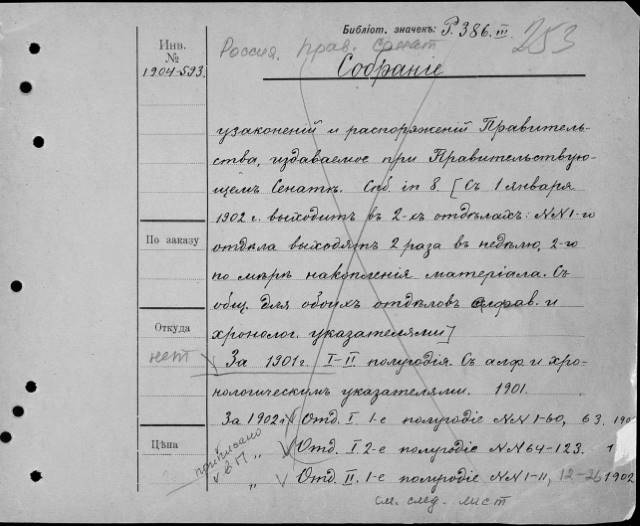 Библіот. значекъ: Р. 386. III
253
Инв.
№
1904-593.
Россия. Прав. сенат
Собраніе
узаконеній и распоряженій Правитель-
ства, издаваемое при Правительствую-
щемъ Сенатѣ. Спб. in 8. [Съ 1 января
1902 г. выходитъ въ 2-хъ отдѣлахъ: NN 1-го
отдѣла выходятъ 2 раза въ недѣлю, 2-го
по мѣрѣ накопленія матеріала. Съ
общ. для обоихъ отдѣловъ алфав. и
хронолог. указателями]
За 1901 г. I-II полугодія. Съ алф. и хро-
нологическимъ указателями. 1901.
За 1902 г. Отд. I 1-е полугодіе NN 1-60, 63. 190
„ Отд. I 2-е полугодіе NN 64-123. 1
„ Отд. II. 1-е полугодіе NN 1-11, 12-26 1902
см. след. лист
По заказу
Откуда
нет
Цѣна
приписано